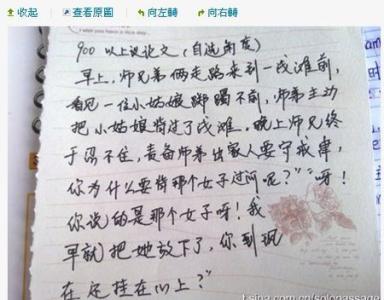 收起 查看原圖 向左轉 向右轉
900 以上议论文（自选角度）
早上，师兄弟俩走路来到一浅滩前，
看见一位小姑娘踟蹰不前，师弟主动
把小姑娘背过了浅滩，晚上师兄终
于忍不住，责备师弟出家人要守戒律，
你为什么要背那个女子过河呢？”“呀！
你说的是那个女子呀！我
早就把她放下了，你到现
在还挂在心上？”
t.sina.com.cn/solopassage